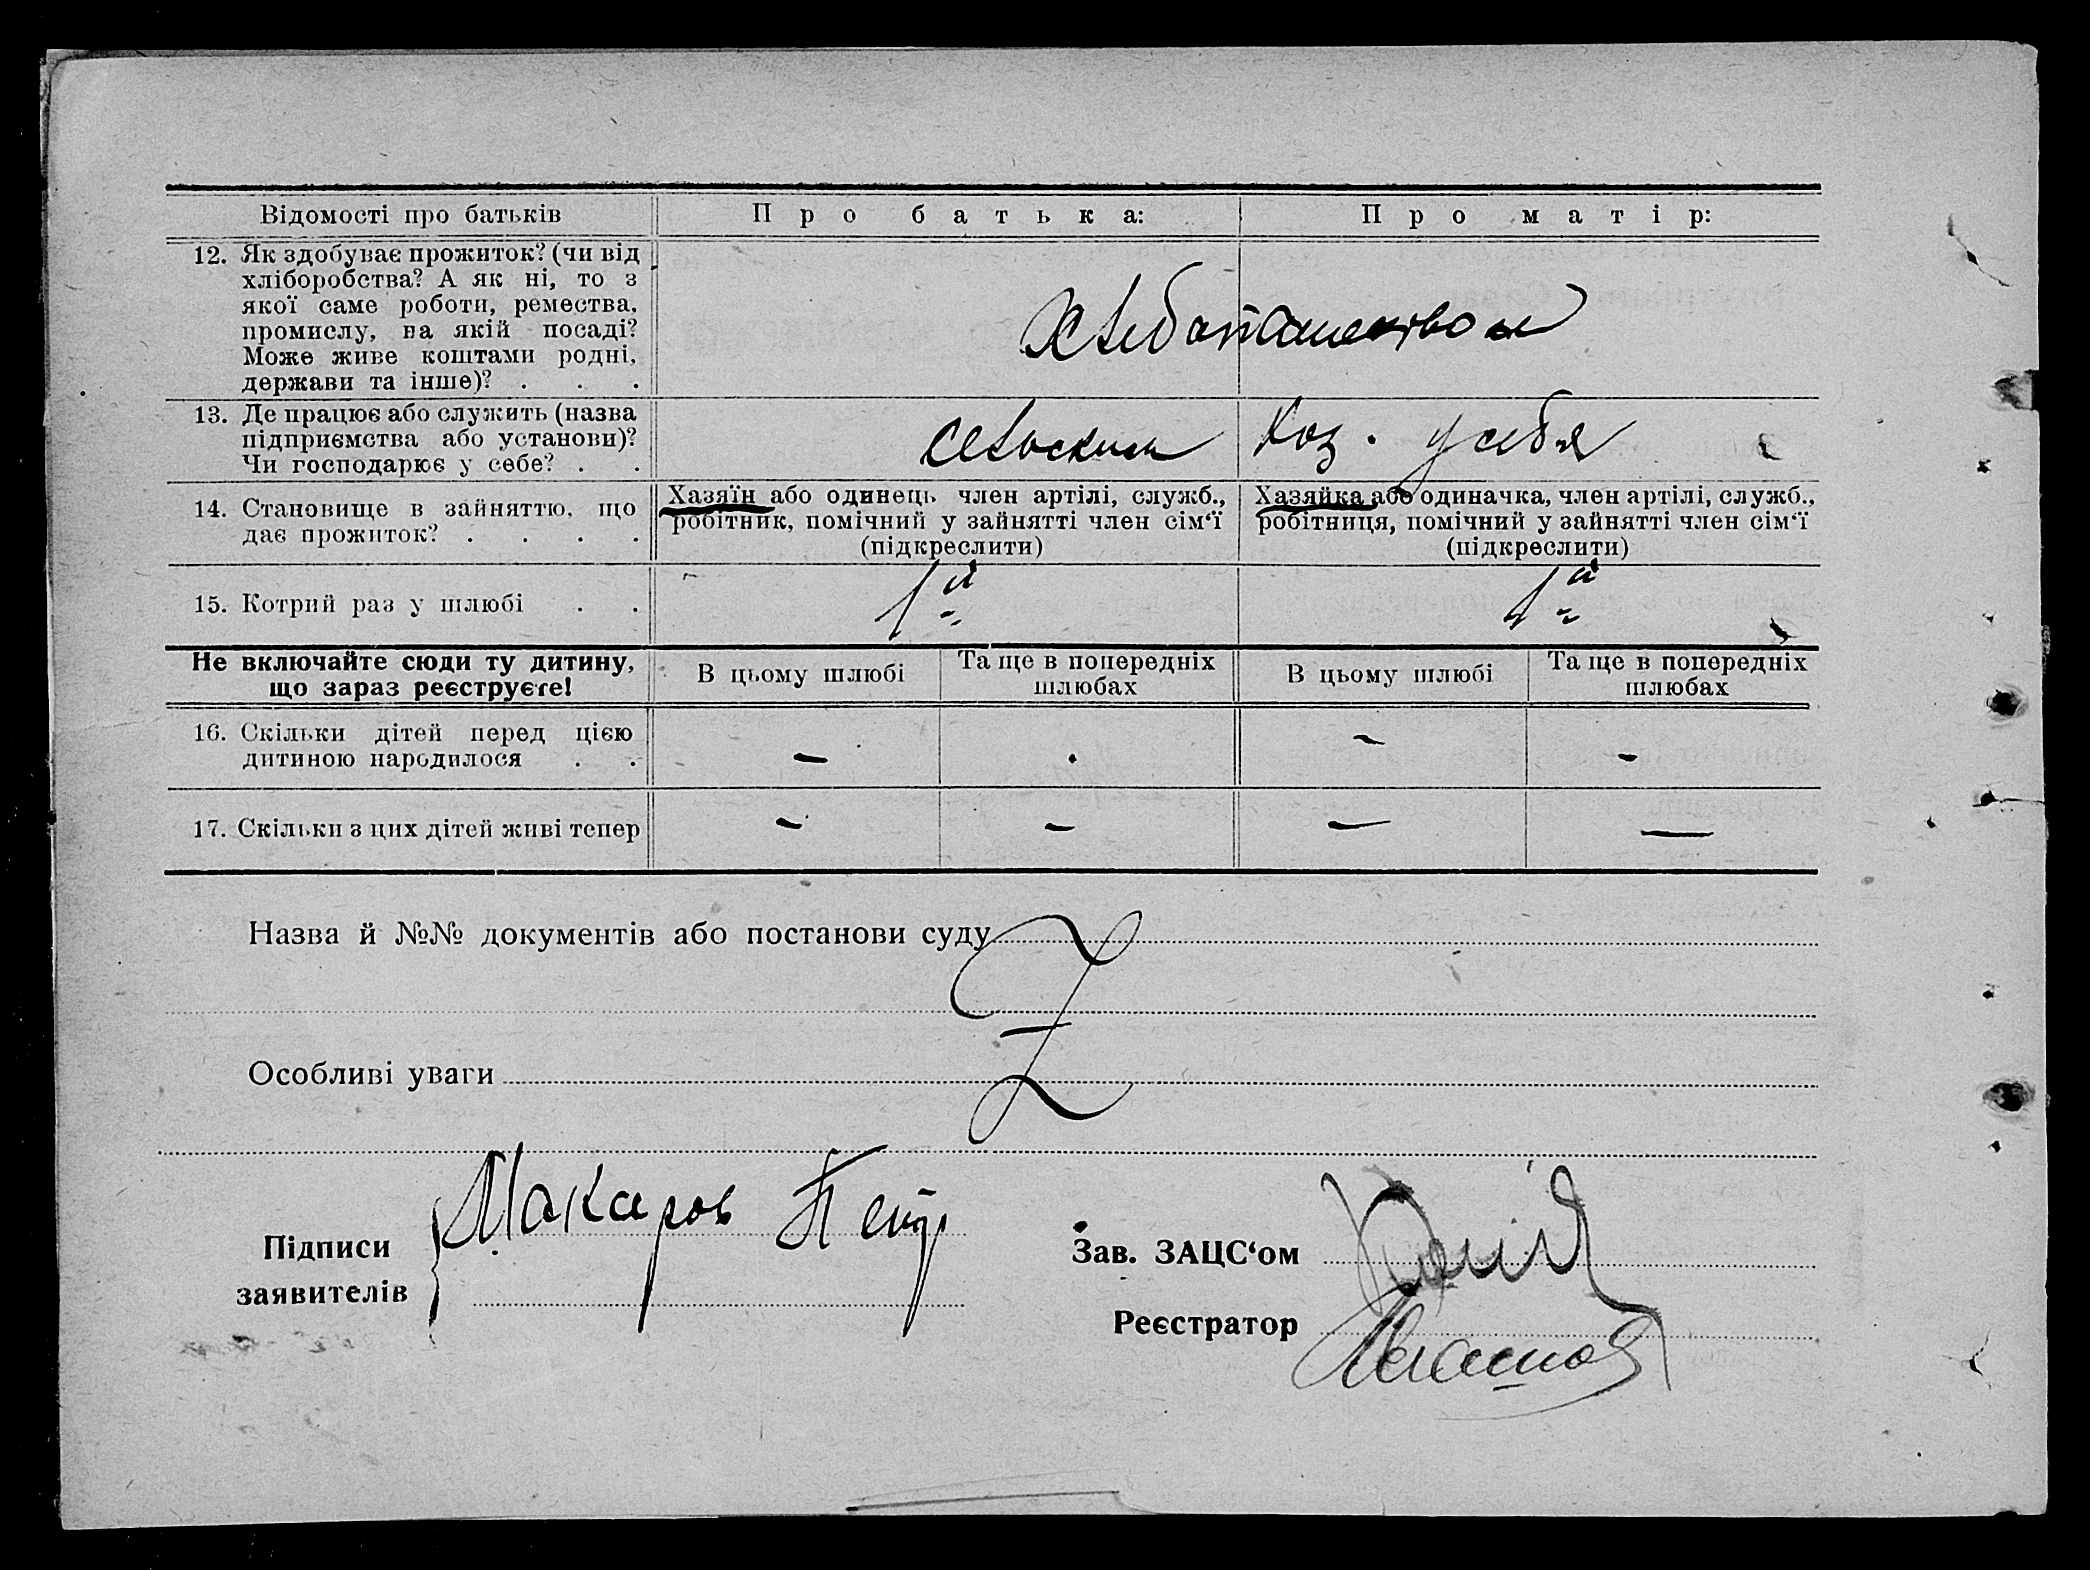 Відомості про батьків
Про батька:
Про матір:
12. Як здобуває прожиток? (чи від
хліборобства? А як ні, то з
якої саме роботи, ремества,
промислу, на якій посаді?
Може живе коштами родні,
держави та інше)? . . .
Хлебопашеством
13. Де працює або служить (назва
підприємства або установи)?
Чи господарює у себе? . .
сельским хоз. у себя
14. Становище в зайняттю, що
дає прожиток? . . . .
Хазяїн або одинець, член артілі, служб.,
робітник, помічний у зайнятті член сім'ї
(підкреслити)
Хазяйка або одиначка, член артілі, служб.,
робітниця, помічний у зайнятті член сім'ї
(підкреслити)
15. Котрий раз у шлюбі . .
1й
1й
Не включайте сюди ту дитину,
що зараз реєструєте!
В цьому шлюбі
Та ще в попередніх
шлюбах
В цьому шлюбі
Та ще в попередніх
шлюбах
16. Скільки дітей перед цією
дитиною народилося . .
– . – –
17. Скільки з цих дітей живі тепер
– – – —
Назва й №№ документів або постанови суду
Особливі уваги
Підписи
заявителів
Макаров Петр
Зав. ЗАЦС'ом
Реєстратор